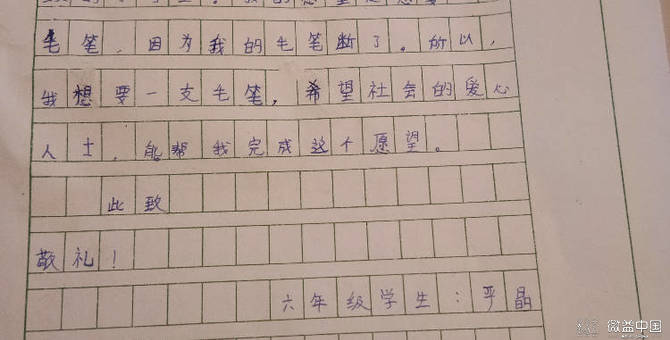 毛笔，因为我的毛笔断了。所以，
我想要一支毛笔，希望社会的爱心
人士，能帮我完成这个愿望。
此致
敬礼！
六年级学生：平晶
微益中国